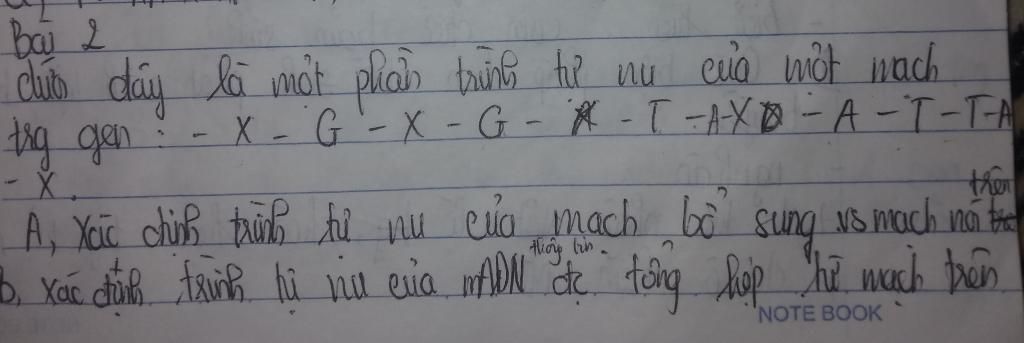 Bài 2
dưới đây là một phần trình tự nu của một mạch
trg gen : - X - G - X - G - A - T - A - X - A - T - T - A
- X.
A, Xác định trình tự nu của mạch bổ sung vs mạch nói trên
b, Xác định trình tự nu của mADN thông tin đc tổng hợp từ mạch trên
NOTE BOOK